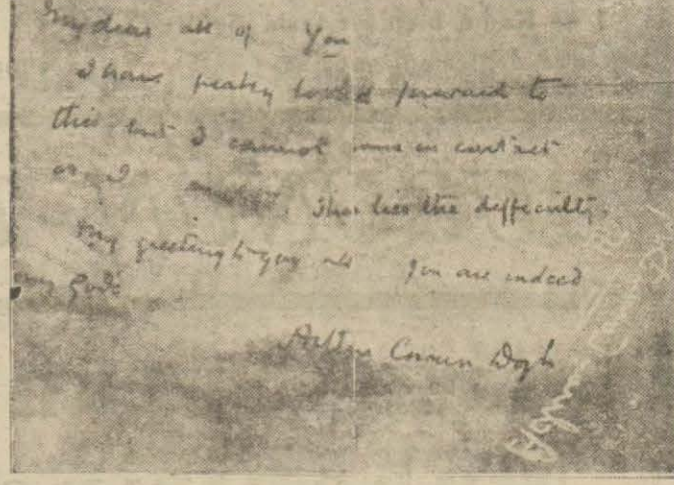 My dear all of you
I have greatly looked forward to
this but I cannot come in contact
as I. Here lies the difficulty.
My greeting to you all You are indeed
my God's
Arthur Conan Doyle